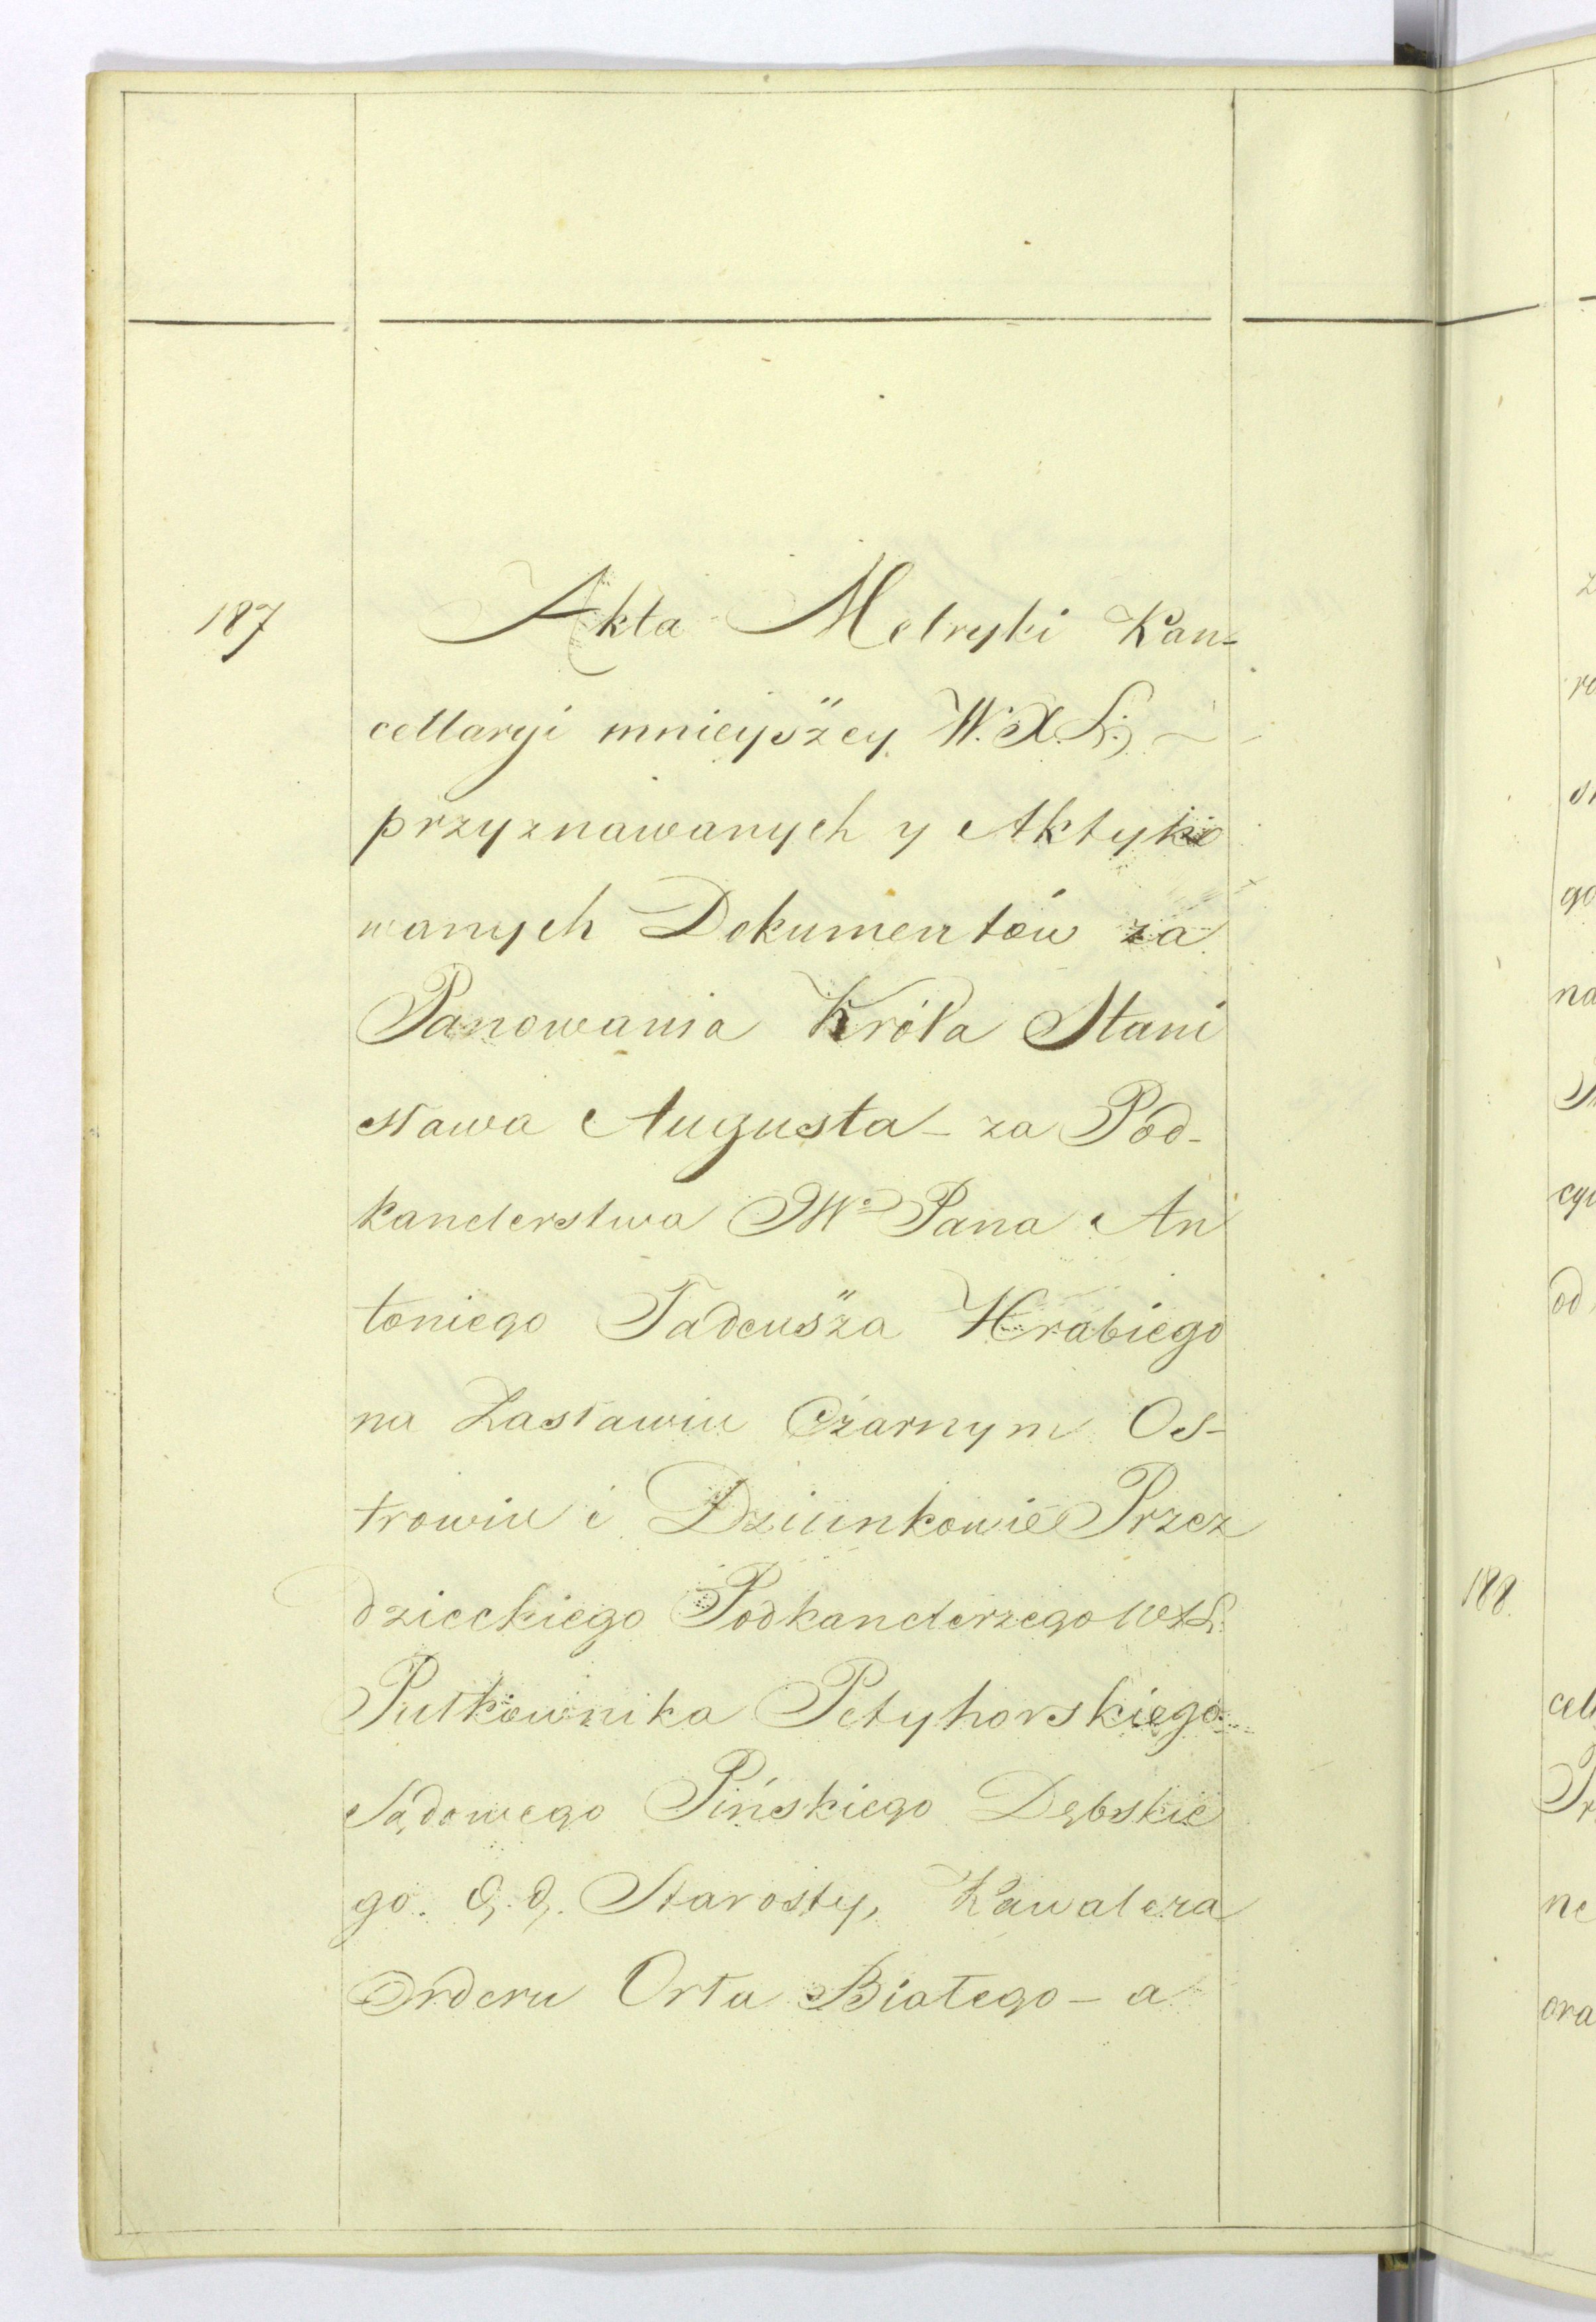 187 Akta Metryki Kan-
cellaryi mnieyszey W. X. L.
przyznawanych y Aktyko
wanych Dokumentów za
Panowania Króla Stani
sława Augusta - za Pod-
kanclerstwa JW° Pana An
toniego Tadeusza Hrabiego
na Zasławiu Czarnym Os-
trowiu i Dziunkowie Przez
dzieckiego Podkanclerzego WXL.
Pułkownika Petyhorskiego
Sądowego Pińskiego Dębskie
go. &. &. Starosty, Kawalera
Orderu Orła Białego - a
188.